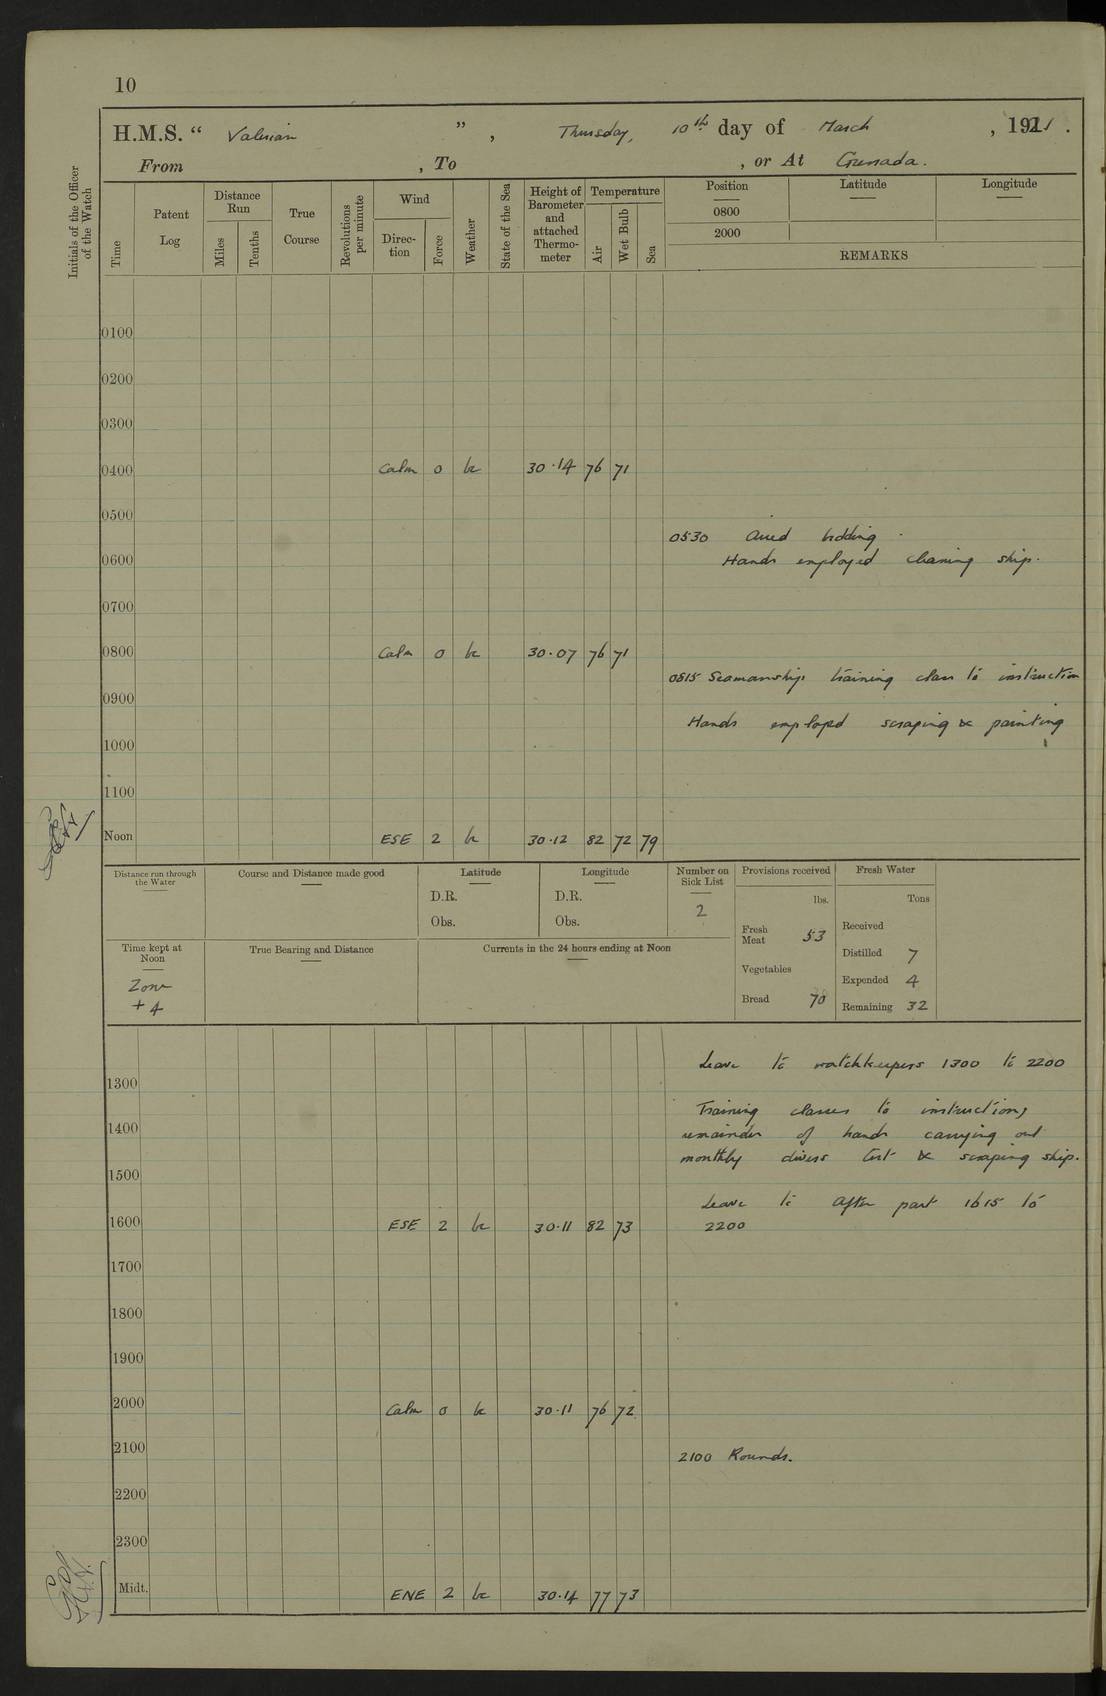 10
H.M.S. “ Valerian ” , Thursday, 10th day of March , 1921 .
From , To , or At Grenada.
Initials of the Officer of the Watch
Time
Patent Log
Distance Run
Miles
Tenths
True Course
Revolutions per minute
Wind
Direc-tion
Force
Weather
State of the Sea
Height of Barometer and attached Thermo-meter
Temperature
Air
Wet Bulb
Sea
Position
Latitude
Longitude
0800
2000
REMARKS
0100
0200
0300
0400 Calm 0 bc 30.14 76 71
0500
0530 Aired bedding.
0600 Hands employed cleaning ship.
0700
0800 Calm 0 bc 30.07 76 71
0815 Seamanship training class to instruction
0900
Hands employed scraping & painting
1000
1100
Noon ESE 2 bc 30.12 82 72 79
Distance run through the Water
Course and Distance made good
Latitude
D.R.
Obs.
Longitude
D.R.
Obs.
Number on Sick List
2
Provisions received
lbs.
Fresh Meat 53
Vegetables
Bread 70
Fresh Water
Tons
Received
Distilled 7
Expended 4
Remaining 32
Time kept at Noon
Zone
+ 4
True Bearing and Distance
Currents in the 24 hours ending at Noon
Leave to watchkeepers 1300 to 2200
1300
Training classes to instruction,
1400 remainder of hands carrying out
monthly divers test & scraping ship.
1500
Leave to after part 1615 to
1600 ESE 2 bc 30.11 82 73 2200
1700
1800
1900
2000 Calm 0 bc 30.11 76 72
2100 2100 Rounds.
2200
2300
Midt. ENE 2 bc 30.14 77 73